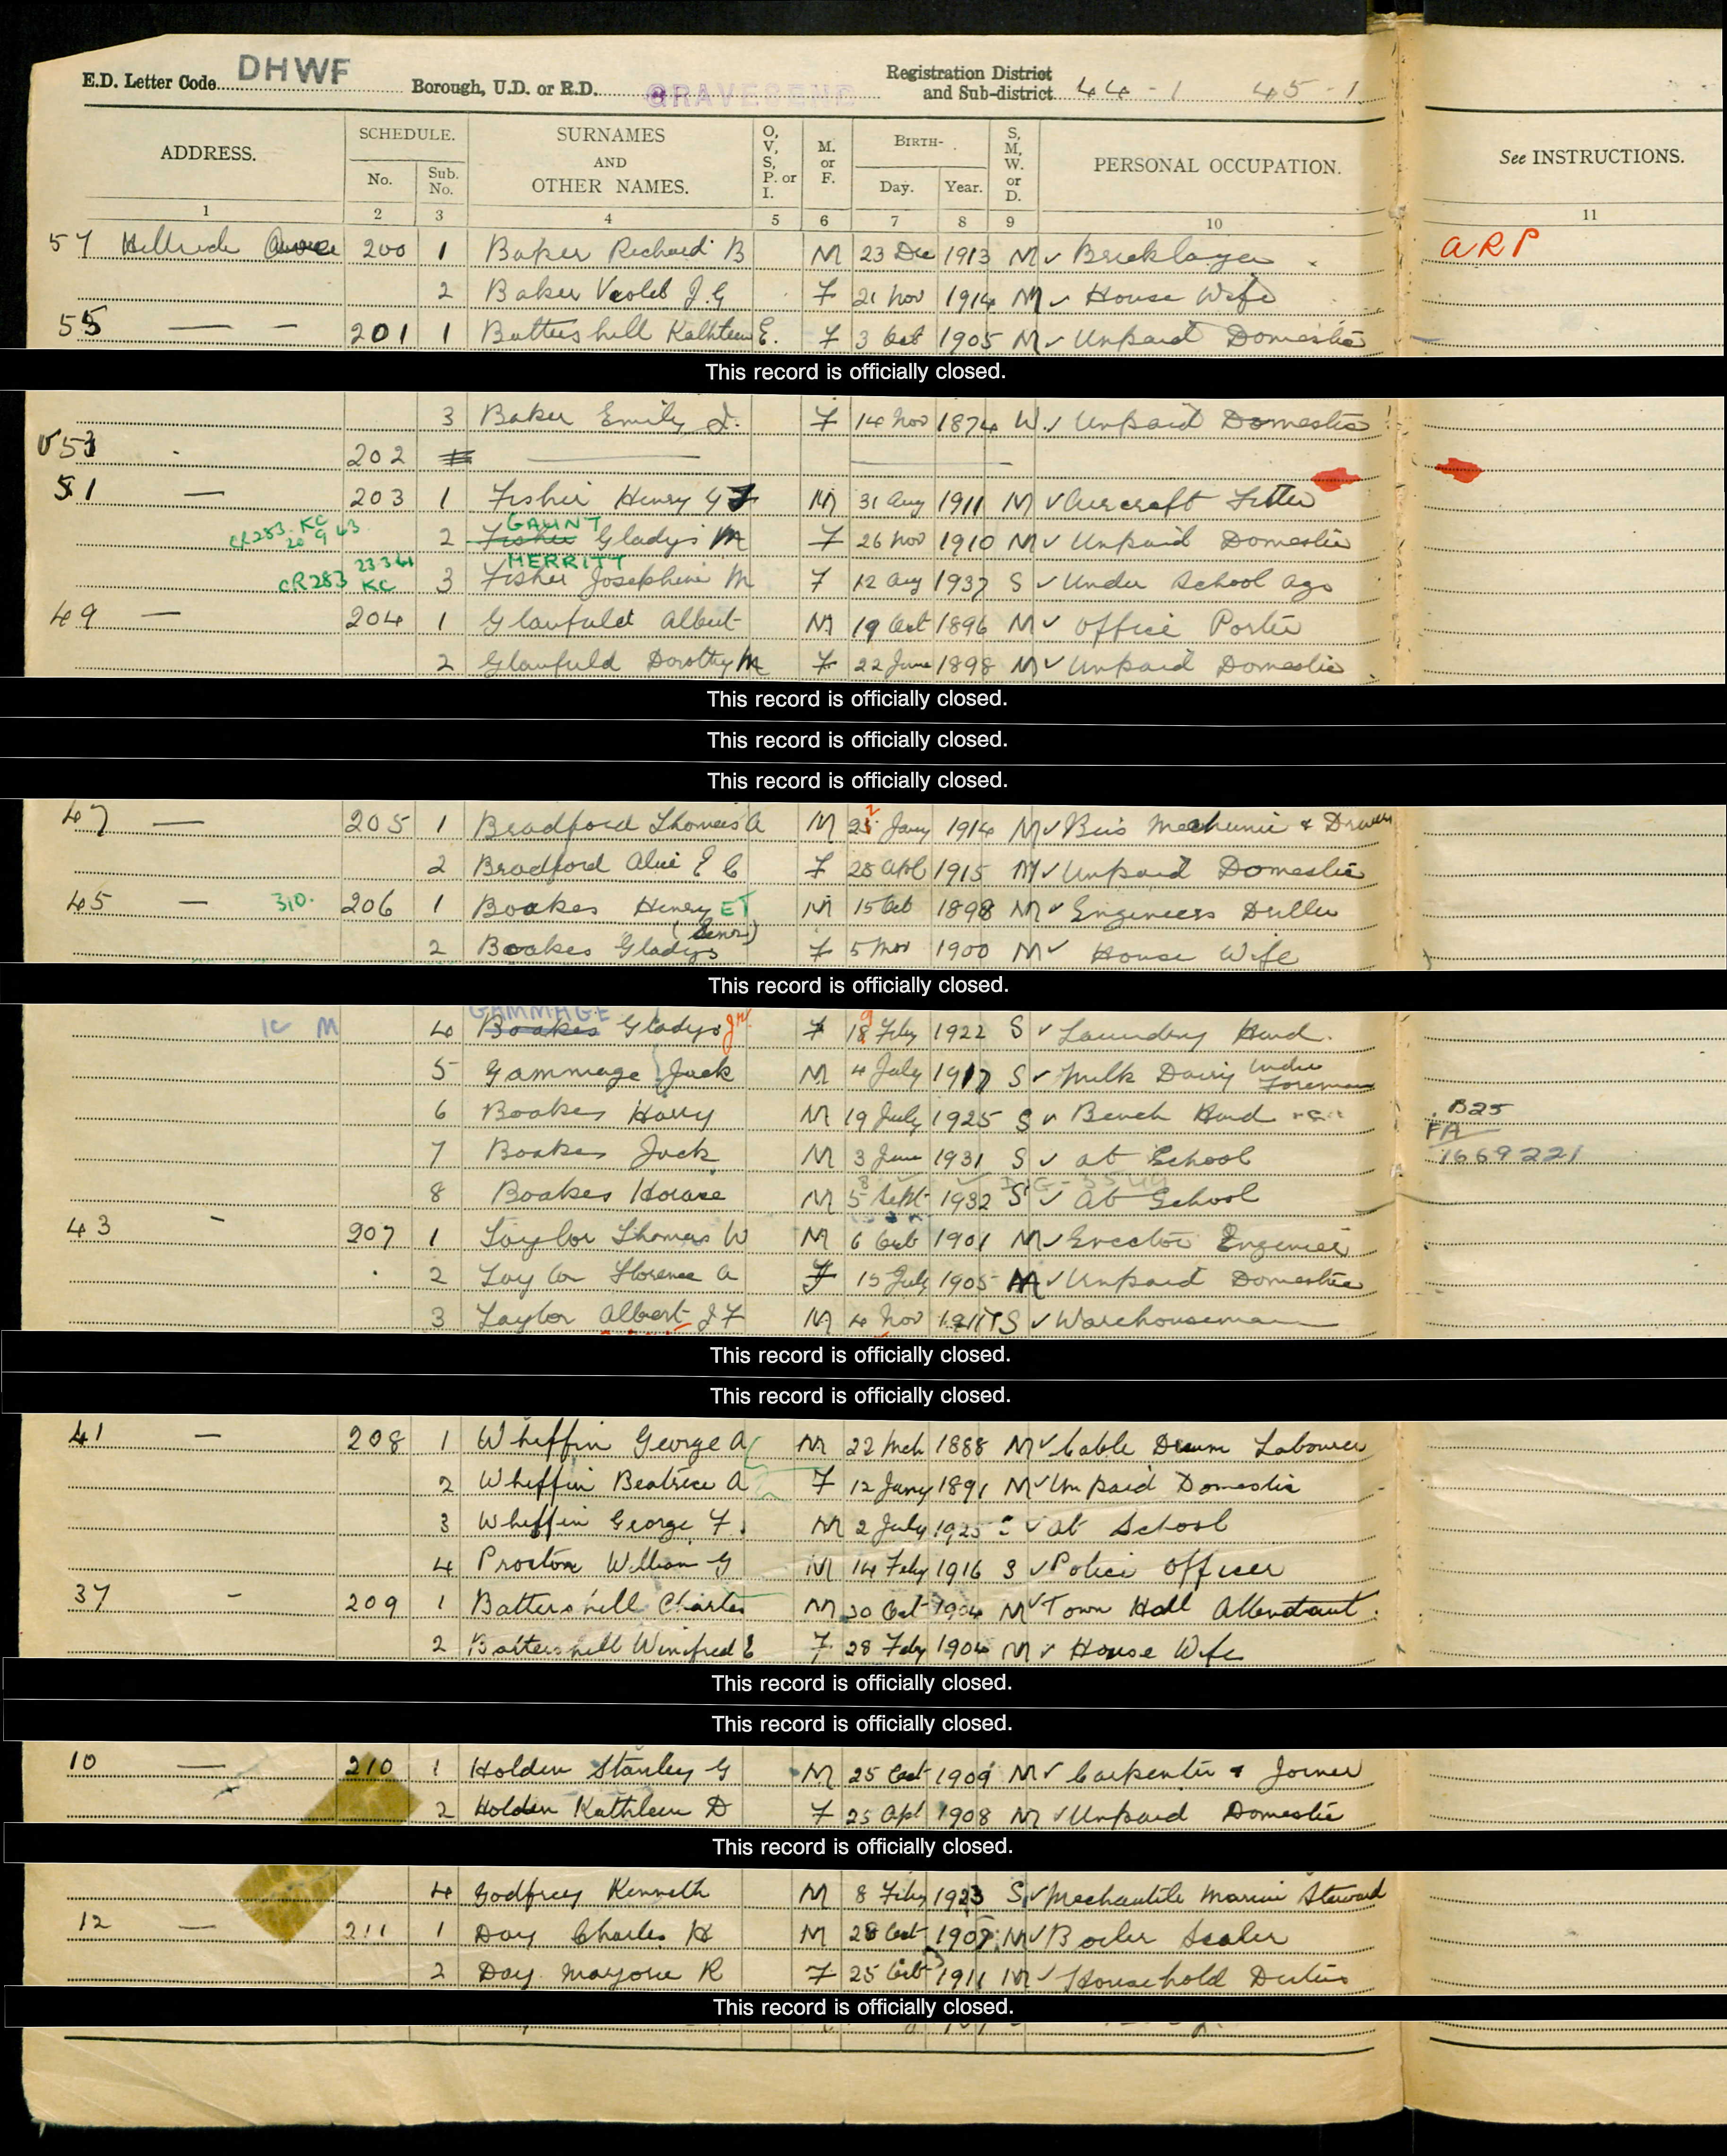 E.D. Letter Code DHWF Borough, U.D. or R.D. GRAVESEND Registration District and Sub-district 44-1 45-1
ADDRESS. SCHEDULE. SURNAMES AND OTHER NAMES. O, V, S, P. or I. M. or F. BIRTH- S, M, W. or D. PERSONAL OCCUPATION. See INSTRUCTIONS.
No. Sub. No. Day. Year.
1 2 3 4 5 6 7 8 9 10 11
57 200 1 Baker Richard B M 23 Dec 1913 M Bricklayer ARP
2 Baker Violet J.G F 21 Nov 1914 M House Wife
55 — 201 1 Battershill Kathleen E. F 3 Oct 1905 M Unpaid Domestic
This record is officially closed.
3 Baker Emily J. F 14 Nov 1874 W. Unpaid Domestic
53 202
51 — 203 1 Fisher Henry G F M 31 Aug 1911 M Aircraft Fitter
CR283 KC 20 9 43 2 Fisher GAUNT Gladys M F 26 Nov 1910 M Unpaid Domestic
CR283 KC 3 Fisher MERRITT Josephine M F 12 Aug 1937 S Under School Age
49 — 204 1 Glanfield Albert M 19 Oct 1896 M Office Porter
2 Glanfield Dorothy M F 22 June 1898 M Unpaid Domestic
This record is officially closed.
This record is officially closed.
This record is officially closed.
47 — 205 1 Bradford Thomas A M Jany 1914 M Bus Mechanic & Driver
2 Bradford Alice E C F 28 Apl 1915 M Unpaid Domestic
45 — 310. 206 1 Boakes Henry ET M 15 1898 M Engineers Driller
2 Boakes Gladys (Senr) F 5 Nov 1900 M House Wife
This record is officially closed.
4 Boakes GAMMAGE Gladys Jnr F Feby 1922 S Laundry Hand.
5 Gammage Jack M 4 July 1917 S Milk Dairy Under Foreman
6 Boakes Harry M 19 July 1925 S Bench Hand B25
7 Boakes Jack M 3 June 1931 S at School FA 1669221
8 Boakes Horace M 5 Sept 1932 S At School
43 - 207 1 Taylor Thomas W M 6 Oct 1901 M Erector Engineer
2 Taylor Florence A F 15 July 1905 M Unpaid Domestic
3 Taylor Albert J F M 4 Nov 1917 S Warehouseman
This record is officially closed.
This record is officially closed.
41 — 208 1 Wheffin George A M 22 Mch 1888 M Cable Drum Labourer
2 Wheffin Beatrice A F 12 Jany 1891 M Unpaid Domestic
3 Wheffin George F. M 2 July 1925 at School
4 Procter William G M 14 Feby 1916 S Police Officer
37 - 209 1 Battershill Charles M 30 Oct 1904 M Town Hall Attendant.
2 Battershill Winifred E F 28 Feby 1904 M House Wife
This record is officially closed.
This record is officially closed.
10 — 210 1 Holden Stanley G M 25 Oct 1909 M Carpenter & Joiner
2 Holden Kathleen D F 25 Apl 1908 M Unpaid Domestic
This record is officially closed.
4 Godfrey Kenneth M 8 Feby 1923 S Mechantile Marine Steward
12 — 211 1 Day Charles H M 28 Oct M Boiler Scaler
2 Day Marjorie R F 25 Oct 1911 M Household Duties
This record is officially closed.